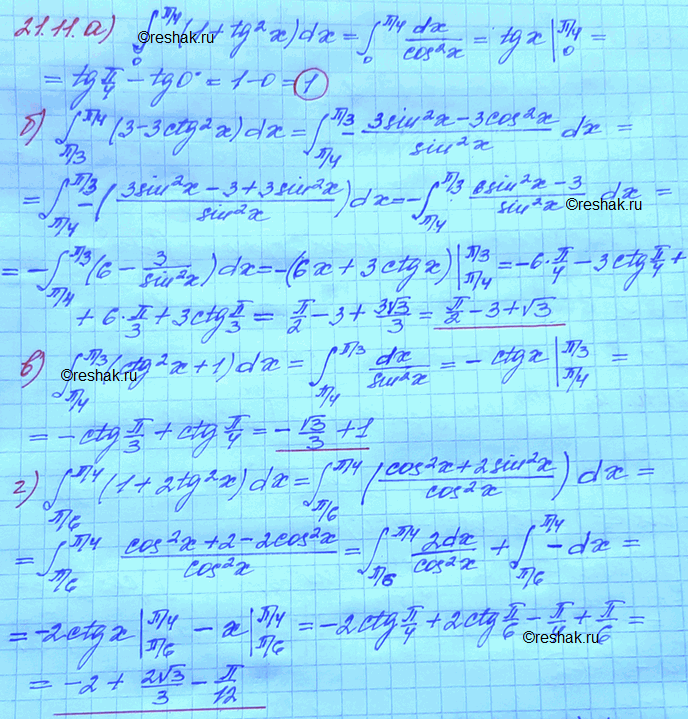 21.11. а) ∫₀^{π/4} (1 + tg²x) dx = ∫₀^{π/4} dx/cos²x = tgx |₀^{π/4} =
= tg π/4 − tg0° = 1 − 0 = 1
б) ∫_{π/3}^{π/4} (3 − 3ctg²x) dx = ∫_{π/4}^{π/3} − (3sin²x − 3cos²x)/sin²x dx =
= ∫_{π/4}^{π/3} − ((3sin²x − 3 + 3sin²x)/sin²x) dx = − ∫_{π/4}^{π/3} (6sin²x − 3)/sin²x dx =
©reshak.ru
= − ∫_{π/4}^{π/3} (6 − 3/sin²x) dx = −(6x + 3ctgx) |_{π/4}^{π/3} = −6·π/4 − 3ctg π/4 +
+ 6·π/3 + 3ctg π/3 = π/2 − 3 + 3√3/3 = π/2 − 3 + √3
в) ∫_{π/4}^{π/3} (ctg²x + 1) dx = ∫_{π/4}^{π/3} dx/sin²x = − ctgx |_{π/4}^{π/3} =
©reshak.ru
= −ctg π/3 + ctg π/4 = − √3/3 + 1
г) ∫_{π/6}^{π/4} (1 + 2tg²x) dx = ∫_{π/6}^{π/4} ((cos²x + 2sin²x)/cos²x) dx =
= ∫_{π/6}^{π/4} (cos²x + 2 − 2cos²x)/cos²x = ∫_{π/6}^{π/4} 2dx/cos²x + ∫_{π/6}^{π/4} − dx =
= −2ctgx |_{π/6}^{π/4} − x |_{π/6}^{π/4} = −2ctg π/4 + 2ctg π/6 − π/4 + π/6 =
©reshak.ru
= −2 + 2√3/3 − π/12